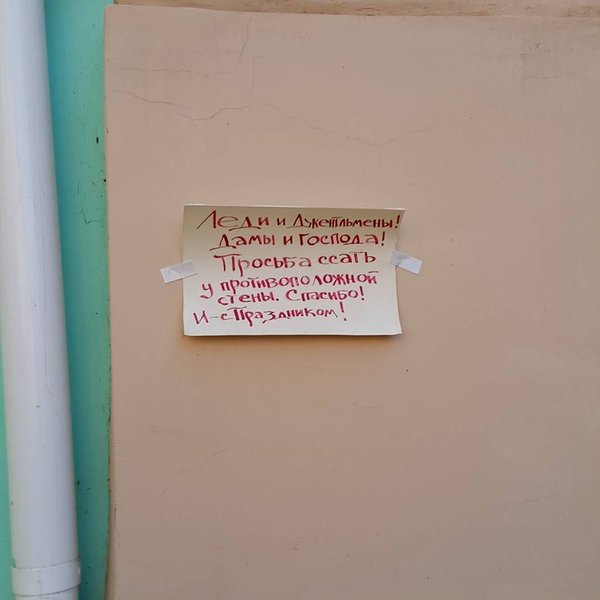 Леди и Джентльмены!
Дамы и Господа!
Просьба ссать
у противоположной
стены. Спасибо!
И-с Праздником!